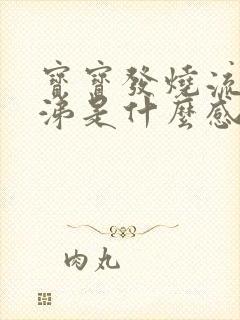 寶寶發燒流
涕是什麼感
肉丸